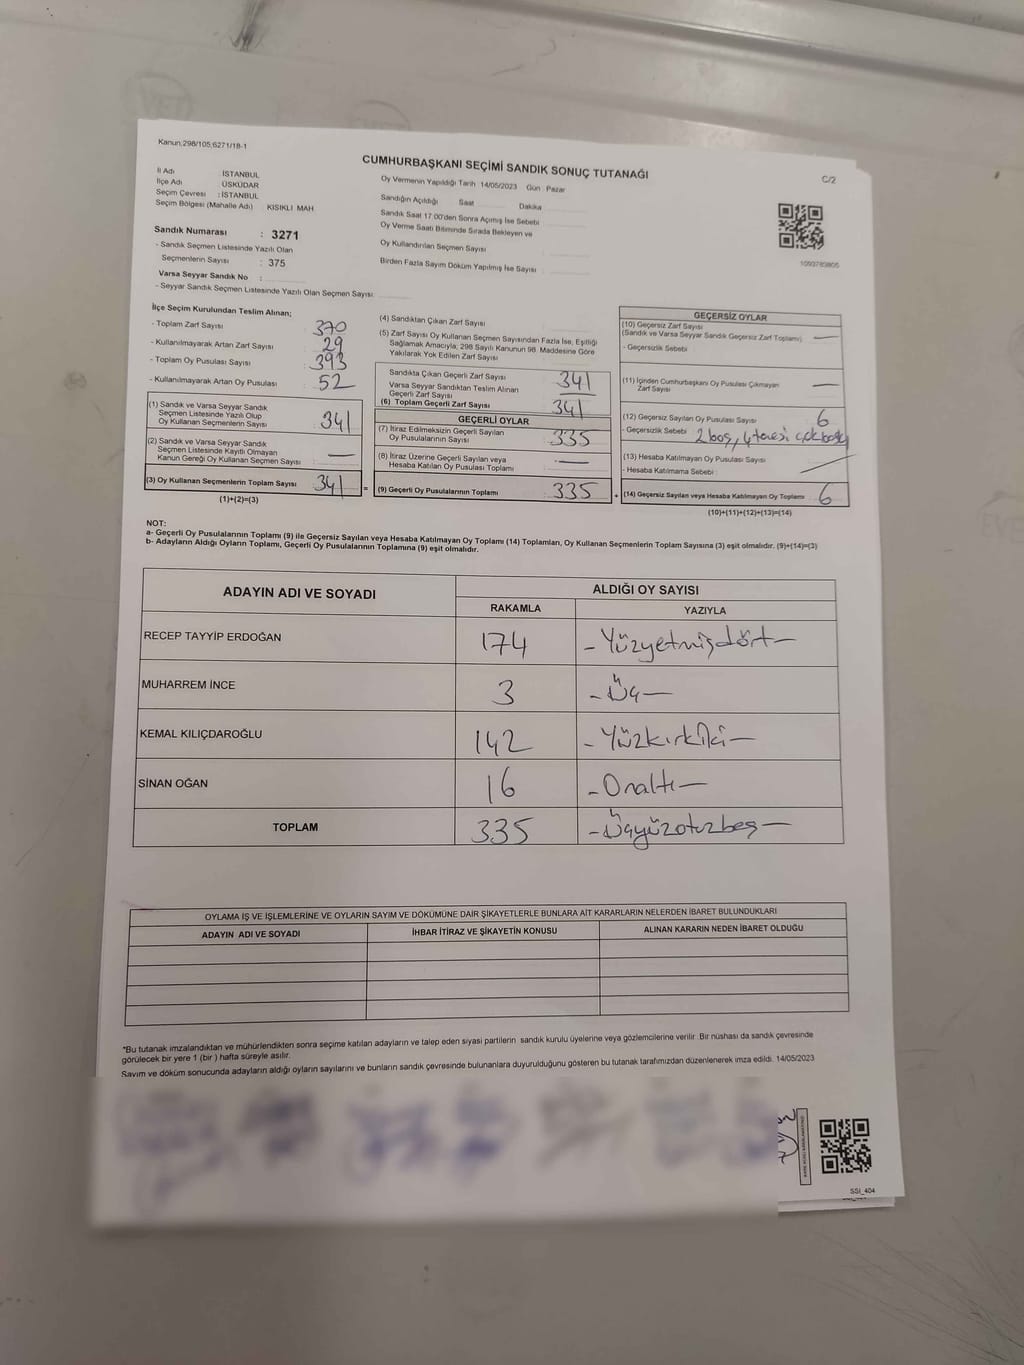 Kanun,298/105,6271/18-1
CUMHURBAŞKANI SEÇİMİ SANDIK SONUÇ TUTANAĞI
C/2
İl Adı : İSTANBUL
İlçe Adı : ÜSKÜDAR
Seçim Çevresi : İSTANBUL
Seçim Bölgesi (Mahalle Adı) : KISIKLI MAH.
Sandık Numarası : 3271
- Sandık Seçmen Listesinde Yazılı Olan
Seçmenlerin Sayısı : 375
Varsa Seyyar Sandık No :
- Seyyar Sandık Seçmen Listesinde Yazılı Olan Seçmen Sayısı:
Oy Vermenin Yapıldığı Tarih :14/05/2023 Gün : Pazar
Sandığın Açıldığı Saat Dakika
Sandık Saat 17.00'den Sonra Açılmış İse Sebebi
Oy Verme Saati Bitiminde Sırada Bekleyen ve
Oy Kullandırılan Seçmen Sayısı
Birden Fazla Sayım Döküm Yapılmış İse Sayısı
1093783805
İlçe Seçim Kurulundan Teslim Alınan;
- Toplam Zarf Sayısı : 370
- Kullanılmayarak Artan Zarf Sayısı : 29
- Toplam Oy Pusulası Sayısı : 393
- Kullanılmayarak Artan Oy Pusulası : 52
(1) Sandık ve Varsa Seyyar Sandık
Seçmen Listesinde Yazılı Olup
Oy Kullanan Seçmenlerin Sayısı : 341
(2) Sandık ve Varsa Seyyar Sandık
Seçmen Listesinde Kayıtlı Olmayan
Kanun Gereği Oy Kullanan Seçmen Sayısı : —
(3) Oy Kullanan Seçmenlerin Toplam Sayısı : 341
(1)+(2)=(3)
(4) Sandıktan Çıkan Zarf Sayısı
(5) Zarf Sayısı Oy Kullanan Seçmen Sayısından Fazla İse, Eşitliği
Sağlamak Amacıyla; 298 Sayılı Kanunun 98. Maddesine Göre
Yakılarak Yok Edilen Zarf Sayısı
Sandıkta Çıkan Geçerli Zarf Sayısı 341
Varsa Seyyar Sandıktan Teslim Alınan
Geçerli Zarf Sayısı —
(6) Toplam Geçerli Zarf Sayısı 341
GEÇERLİ OYLAR
(7) İtiraz Edilmeksizin Geçerli Sayılan
Oy Pusulalarının Sayısı : 335
(8) İtiraz Üzerine Geçerli Sayılan veya
Hesaba Katılan Oy Pusulası Toplamı : —
= (9) Geçerli Oy Pusulalarının Toplamı : 335
GEÇERSİZ OYLAR
(10) Geçersiz Zarf Sayısı
(Sandık ve Varsa Seyyar Sandık Geçersiz Zarf Toplamı) —
- Geçersizlik Sebebi
(11) İçinden Cumhurbaşkanı Oy Pusulası Çıkmayan
Zarf Sayısı —
(12) Geçersiz Sayılan Oy Pusulası Sayısı : 6
- Geçersizlik Sebebi : 2 boş, 4 tanesi çok baskı
(13) Hesaba Katılmayan Oy Pusulası Sayısı
- Hesaba Katılmama Sebebi :
+ (14) Geçersiz Sayılan veya Hesaba Katılmayan Oy Toplamı : 6
(10)+(11)+(12)+(13)=(14)
NOT:
a- Geçerli Oy Pusulalarının Toplamı (9) ile Geçersiz Sayılan veya Hesaba Katılmayan Oy Toplamı (14) Toplamları, Oy Kullanan Seçmenlerin Toplam Sayısına (3) eşit olmalıdır. (9)+(14)=(3)
b- Adayların Aldığı Oyların Toplamı, Geçerli Oy Pusulalarının Toplamına (9) eşit olmalıdır.
ADAYIN ADI VE SOYADI
ALDIĞI OY SAYISI
RAKAMLA YAZIYLA
RECEP TAYYİP ERDOĞAN 174 -Yüzyetmişdört-
MUHARREM İNCE 3 -Üç-
KEMAL KILIÇDAROĞLU 142 -Yüzkırkiki-
SİNAN OĞAN 16 -Onaltı-
TOPLAM 335 -Üçyüzotuzbeş-
OYLAMA İŞ VE İŞLEMLERİNE VE OYLARIN SAYIM VE DÖKÜMÜNE DAİR ŞİKAYETLERLE BUNLARA AİT KARARLARIN NELERDEN İBARET BULUNDUKLARI
ADAYIN ADI VE SOYADI İHBAR İTİRAZ VE ŞİKAYETİN KONUSU ALINAN KARARIN NEDEN İBARET OLDUĞU
*Bu tutanak imzalandıktan ve mühürlendikten sonra seçime katılan adayların ve talep eden siyasi partilerin sandık kurulu üyelerine veya gözlemcilerine verilir. Bir nüshası da sandık çevresinde
görülecek bir yere 1 (bir ) hafta süreyle asılır.
Sayım ve döküm sonucunda adayların aldığı oyların sayılarını ve bunların sandık çevresinde bulunanlara duyurulduğunu gösteren bu tutanak tarafımızdan düzenlenerek imza edildi. 14/05/2023
SSI_404